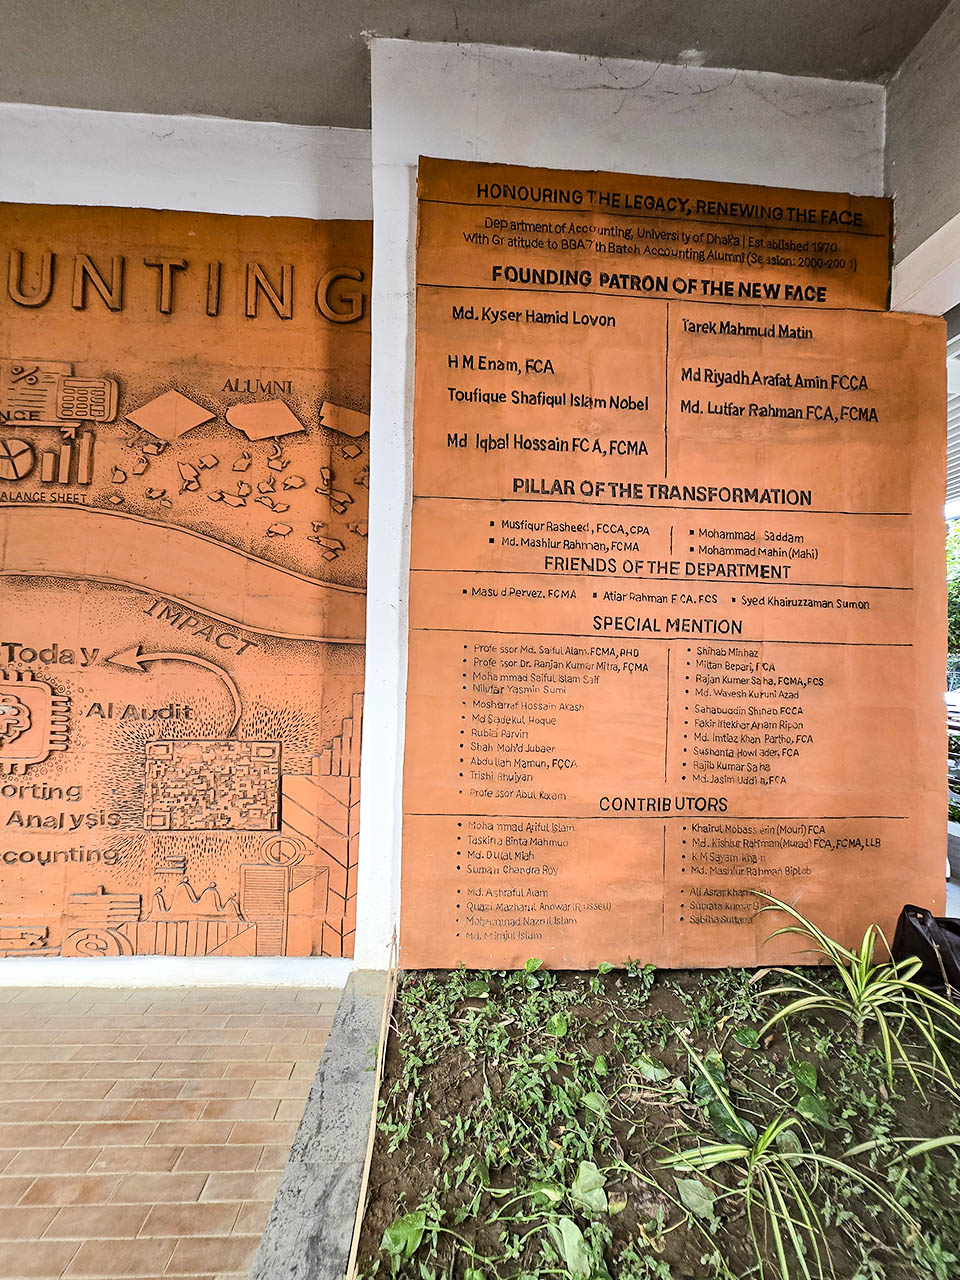 UNTING
%
ALUMNI
NCE
ALANCE SHEET
IMPACT
Today
AI Audit
orting
Analysis
ccounting
HONOURING THE LEGACY, RENEWING THE FACE
Department of Accounting, University of Dhaka | Established 1970
With Gratitude to BBA 7th Batch Accounting Alumni (Session: 2000-2001)
FOUNDING PATRON OF THE NEW FACE
Md. Kyser Hamid Lovon
H M Enam, FCA
Toufique Shafiqul Islam Nobel
Md Iqbal Hossain FCA, FCMA
Tarek Mahmud Matin
Md Riyadh Arafat Amin FCCA
Md. Lutfar Rahman FCA, FCMA
PILLAR OF THE TRANSFORMATION
▪ Musfiqur Rasheed, FCCA, CPA
▪ Md. Mashiur Rahman, FCMA
▪ Mohammad Saddam
▪ Mohammad Mahin (Mahi)
FRIENDS OF THE DEPARTMENT
▪ Masud Pervez, FCMA ▪ Atiar Rahman FCA, FCS ▪ Syed Khairuzzaman Sumon
SPECIAL MENTION
▪ Professor Md. Saiful Alam, FCMA, PHD
▪ Professor Dr. Ranjan Kumar Mitra, FCMA
▪ Mohammad Saiful Islam Saif
▪ Nilufar Yasmin Sumi
▪ Mosharraf Hossain Akash
▪ Md Sadekul Hoque
▪ Rubici Parvin
▪ Shah Moh'd Jubaer
▪ Abdullah Mamun, FCCA
▪ Trishi Bhuiyan
▪ Professor Abul Kalam
▪ Shihab Minhaz
▪ Mittan Bepari, FCA
▪ Rajan Kumar Saha, FCMA, FCS
▪ Md. Wavesh Kuruni Azad
▪ Sahabuddin Shihab FCCA
▪ Fakir Iftekhar Anam Ripon
▪ Md. Imtiaz Khan Partho, FCA
▪ Sushanta Howlader, FCA
▪ Rajib Kumar Saha
▪ Md. Jasim Uddin, FCA
CONTRIBUTORS
▪ Mohammad Ariful Islam
▪ Taskina Binta Mahmud
▪ Md. Dulal Miah
▪ Suman Chandra Roy
▪ Md. Ashraful Alam
▪ Quazi Mazharul Anowar (Russell)
▪ Mohammad Nazrul Islam
▪ Md. Mirajul Islam
▪ Khairul Mobasserin (Mouri) FCA
▪ Md. Kishiur Rahman (Murad) FCA, FCMA, LLB
▪ K M Sayam Khan
▪ Md. Mashiur Rahman Biplob
▪ Ali Asrar Khan
▪ Subrata Kumar
▪ Sabiha Sultana